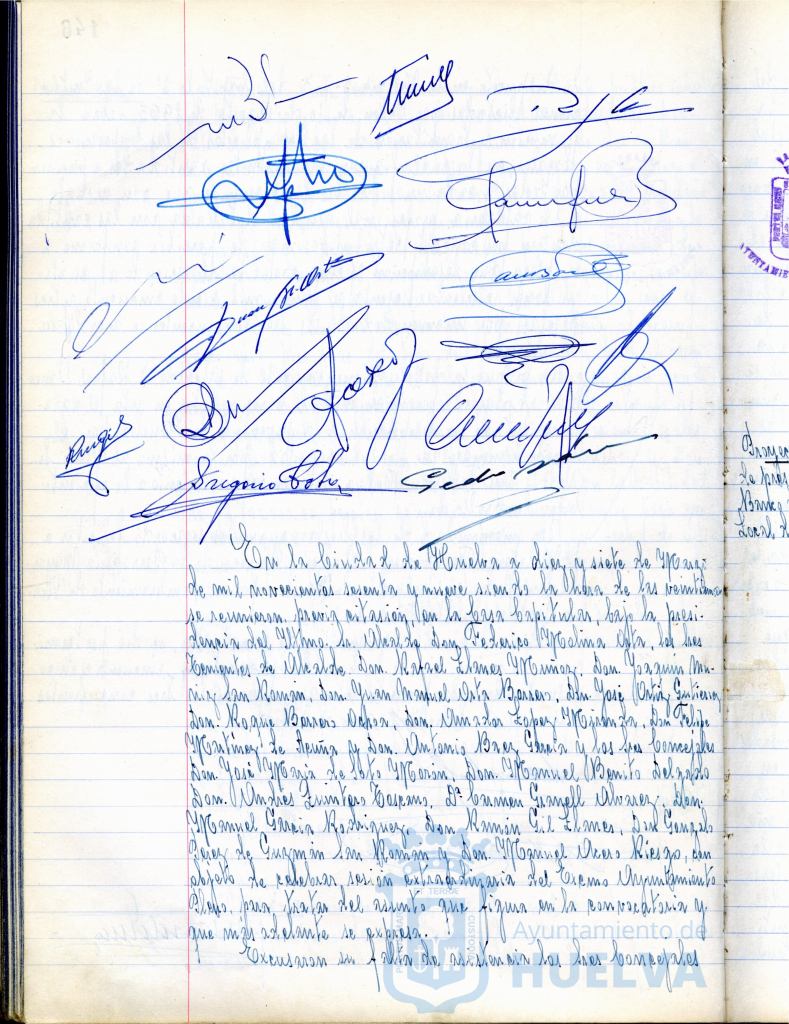 Juan M. Orta
Gregorio Toba
Pedro
En la Ciudad de Huelva a diez y siete de Marzo
de mil novecientos sesenta y nueve siendo la hora de las veintiuna
se reunieron, previa citación, en la Casa Capitular, bajo la presi-
dencia del Iltmo. Sr. Alcalde Don Federico Molina Orta, los Sres
Tenientes de Alcalde Don Rafael Llanes Muñoz, Don Joaquin Mu-
ñiz San Román, Don Juan Manuel Orta Barrera, Don José Ortiz Gutierrez
Don Roque Barrero Ochoa, Don Amador López Miranda, Don Felipe
Martinez de Acuña y Don Antonio Baez Garcia y los Sres Concejales
Don José Maria de Soto Morón, Don Manuel Benito Delgado
Don Andres Quintero Toscano, Dª Carmen Granell Alvarez, Don
Manuel Garcia Rodriguez, Don Ramón Gil Llanes, Don Gonzalo
Perez de Guzmán San Román y Don Manuel Acero Riesgo, con
objeto de celebrar sesión extraordinaria del Excmo Ayuntamiento
Pleno, para tratar del asunto que figura en la convocatoria y
que más adelante se expresa.
Excusaron su falta de asistencia los Sres Concejales
Ayuntamiento de
HUELVA
Proyec
Banco
Local d